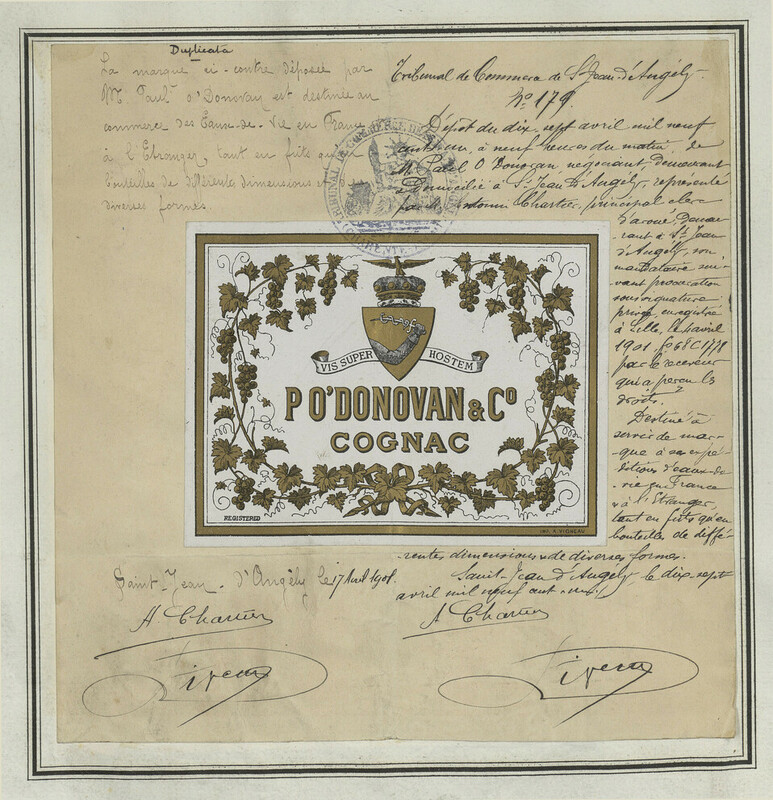 Duplicata
La marque ci-contre déposée par
M. Paul O'Donovan est destinée au
commerce des Eaux-de-Vie en France
à l'Etranger, tant en fûts qu'en
bouteilles de différentes dimensions et de
diverses formes
Tribunal de Commerce de St Jean d'Angély.
No 179
Dépôt du dix sept avril mil neuf
cent un, à neuf heures du matin, de
M. Paul O Donovan négociant, demeurant
& domicilié à St Jean d'Angély, représenté
par M. Antonin Chartier, principal clerc
d'avoué, demeu-
rant à St Jean
d'Angély, son
mandataire sui-
vant procuration
sous signature
privée, enregistrée
à Lille, le 6 avril
1901, fo 68 C 1778
par le receveur
qui a perçu les
droits.
Destiné à
servir de mar-
que à ses expé-
ditions d'eaux-de-
vie en France
& à l'Etranger,
tant en fûts qu'en
bouteilles de diffé-
rentes dimensions & de diverses formes.
Saint-Jean d'Angély, le dix sept
avril mil neuf cent un.
A Chartier
VIS SUPER HOSTEM
P O'DONOVAN & Co
COGNAC
REGISTERED
IMP. A. VIGNEAU
Saint-Jean d'Angély le 17 Avril 1901.
A Chartier